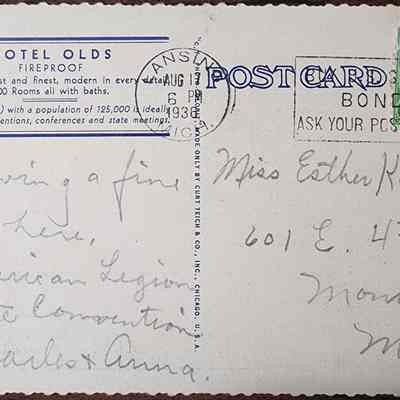 HOTEL OLDS
FIREPROOF
st and finest, modern in every detail
00 Rooms all with baths.
) with a population of 125,000 is ideally
entions, conferences and state meetings.
LANSING
AUG 17
6 PM
1936
MICH.
POST CARD
BOND
ASK YOUR POS
MADE ONLY BY CURT TEICH & CO., INC., CHICAGO, U.S.A.
ving a fine
here,
erican Legion
te Convention
arles & Anna.
Miss Esther K
601 E. 4
Mon
M